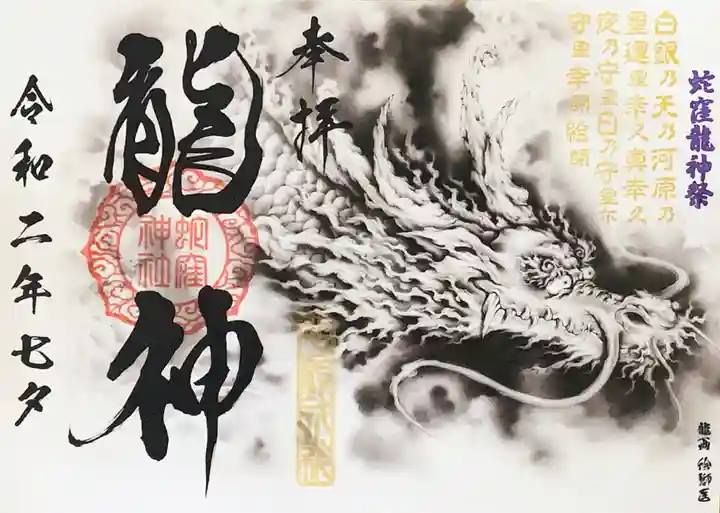 蛇窪龍神祭
白銀乃天乃河原乃
幸久真幸久
夜乃守里日乃守里尓
守里幸閇給閇
奉拝
龍神
蛇窪
神社
令和二年七夕
龍画